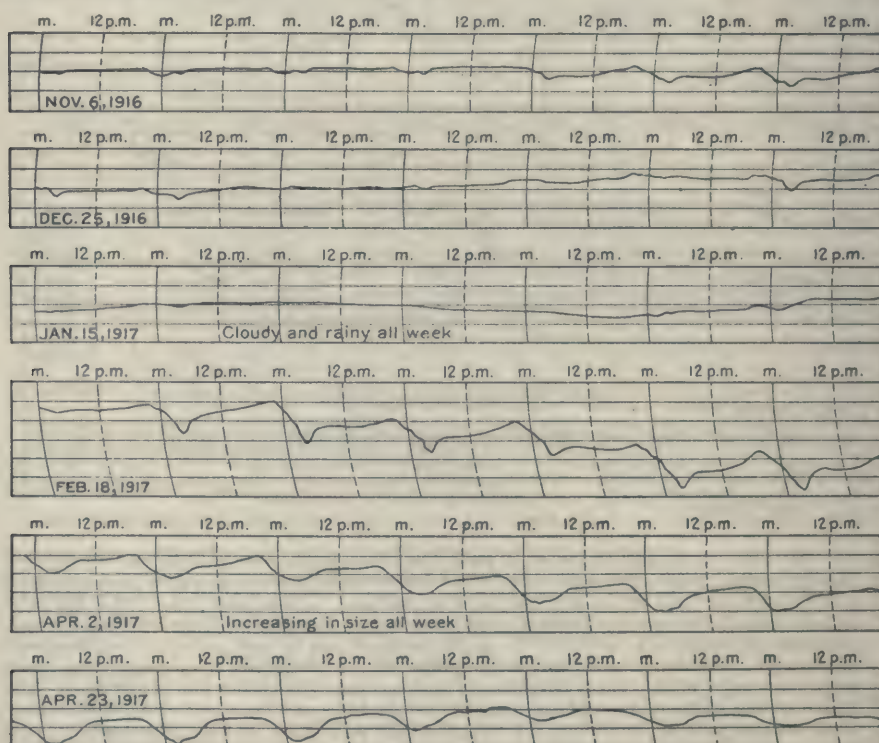 m. 12 p.m. m. 12 p.m. m. 12 p.m. m. 12 p.m. m. 12 p.m. m. 12 p.m. m. 12 p.m.
NOV. 6, 1916
m. 12 p.m. m. 12 p.m. m. 12 p.m. m. 12 p.m. m. 12 p.m. m. 12 p.m. m. 12 p.m.
DEC. 25, 1916
m. 12 p.m. m. 12 p.m. m. 12 p.m. m. 12 p.m. m. 12 p.m. m. 12 p.m. m. 12 p.m.
JAN. 15, 1917 Cloudy and rainy all week
m. 12 p.m. m. 12 p.m. m. 12 p.m. m. 12 p.m. m. 12 p.m. m. 12 p.m. m. 12 p.m.
FEB. 18, 1917
m. 12 p.m. m. 12 p.m. m. 12 p.m. m. 12 p.m. m. 12 p.m. m. 12 p.m. m. 12 p.m.
APR. 2, 1917 Increasing in size all week
m. 12 p.m. m. 12 p.m. m. 12 p.m. m. 12 p.m. m. 12 p.m. m. 12 p.m. m. 12 p.m.
APR. 23, 1917